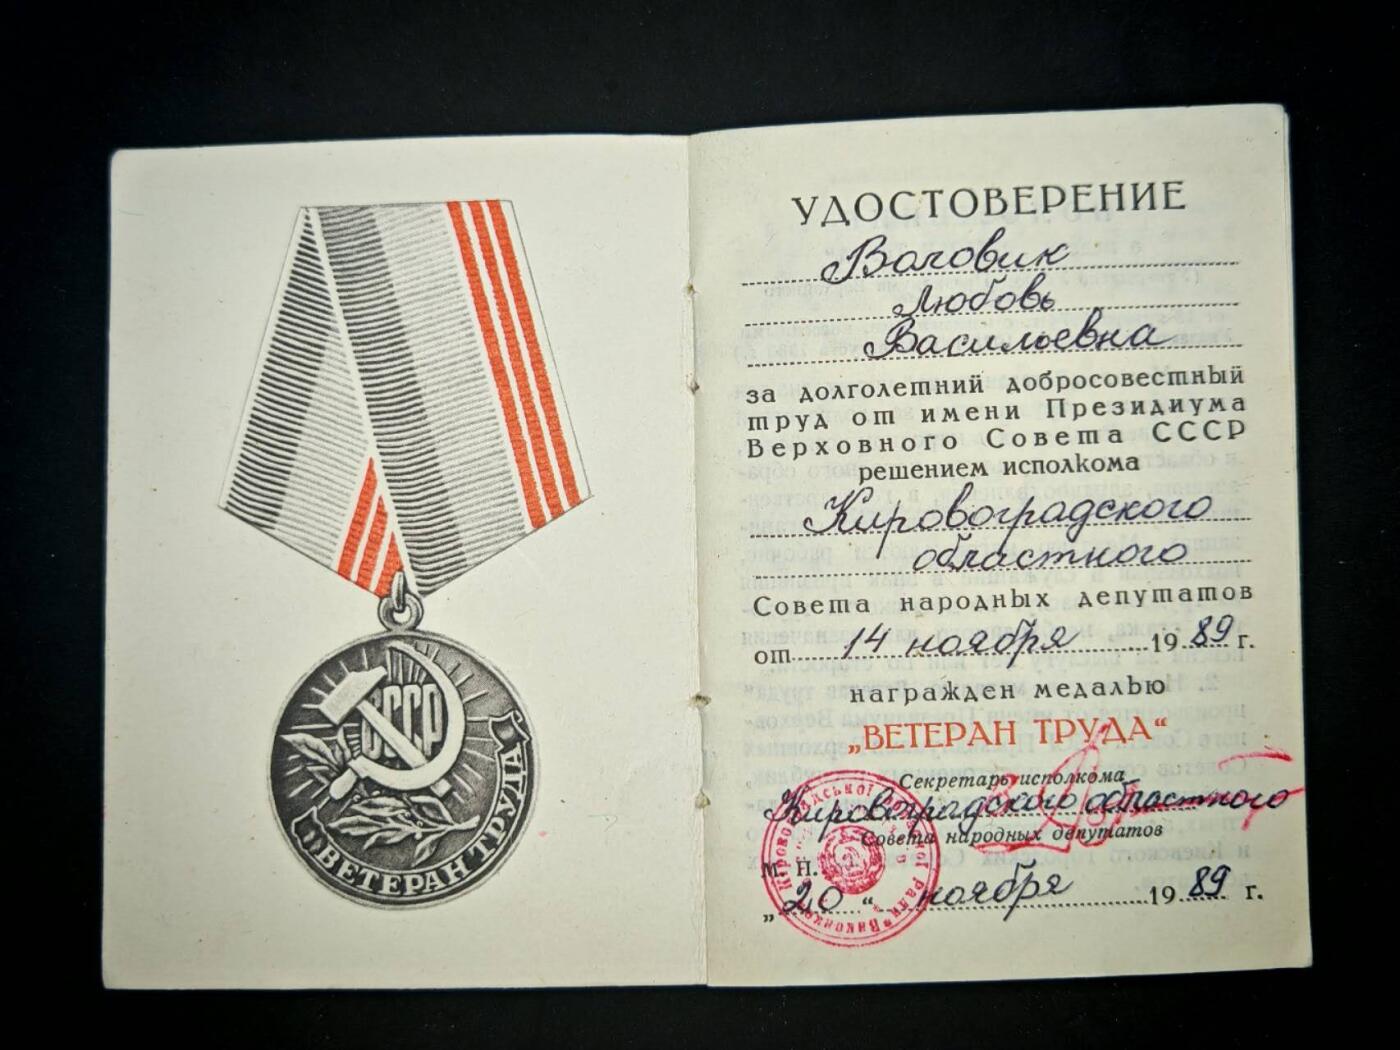 СССР
„ВЕТЕРАН ТРУДА"
УДОСТОВЕРЕНИЕ
Воловик
Любовь
Васильевна
за долголетний добросовестный
труд от имени Президиума
Верховного Совета СССР
решением исполкома
Кировоградского
областного
Совета народных депутатов
от 14 ноября 1989 г.
награжден медалью
„ВЕТЕРАН ТРУДА“
Секретарь исполкома
Кировоградского областного
Совета народных депутатов
М. П.
„20“ ноября 1989 г.